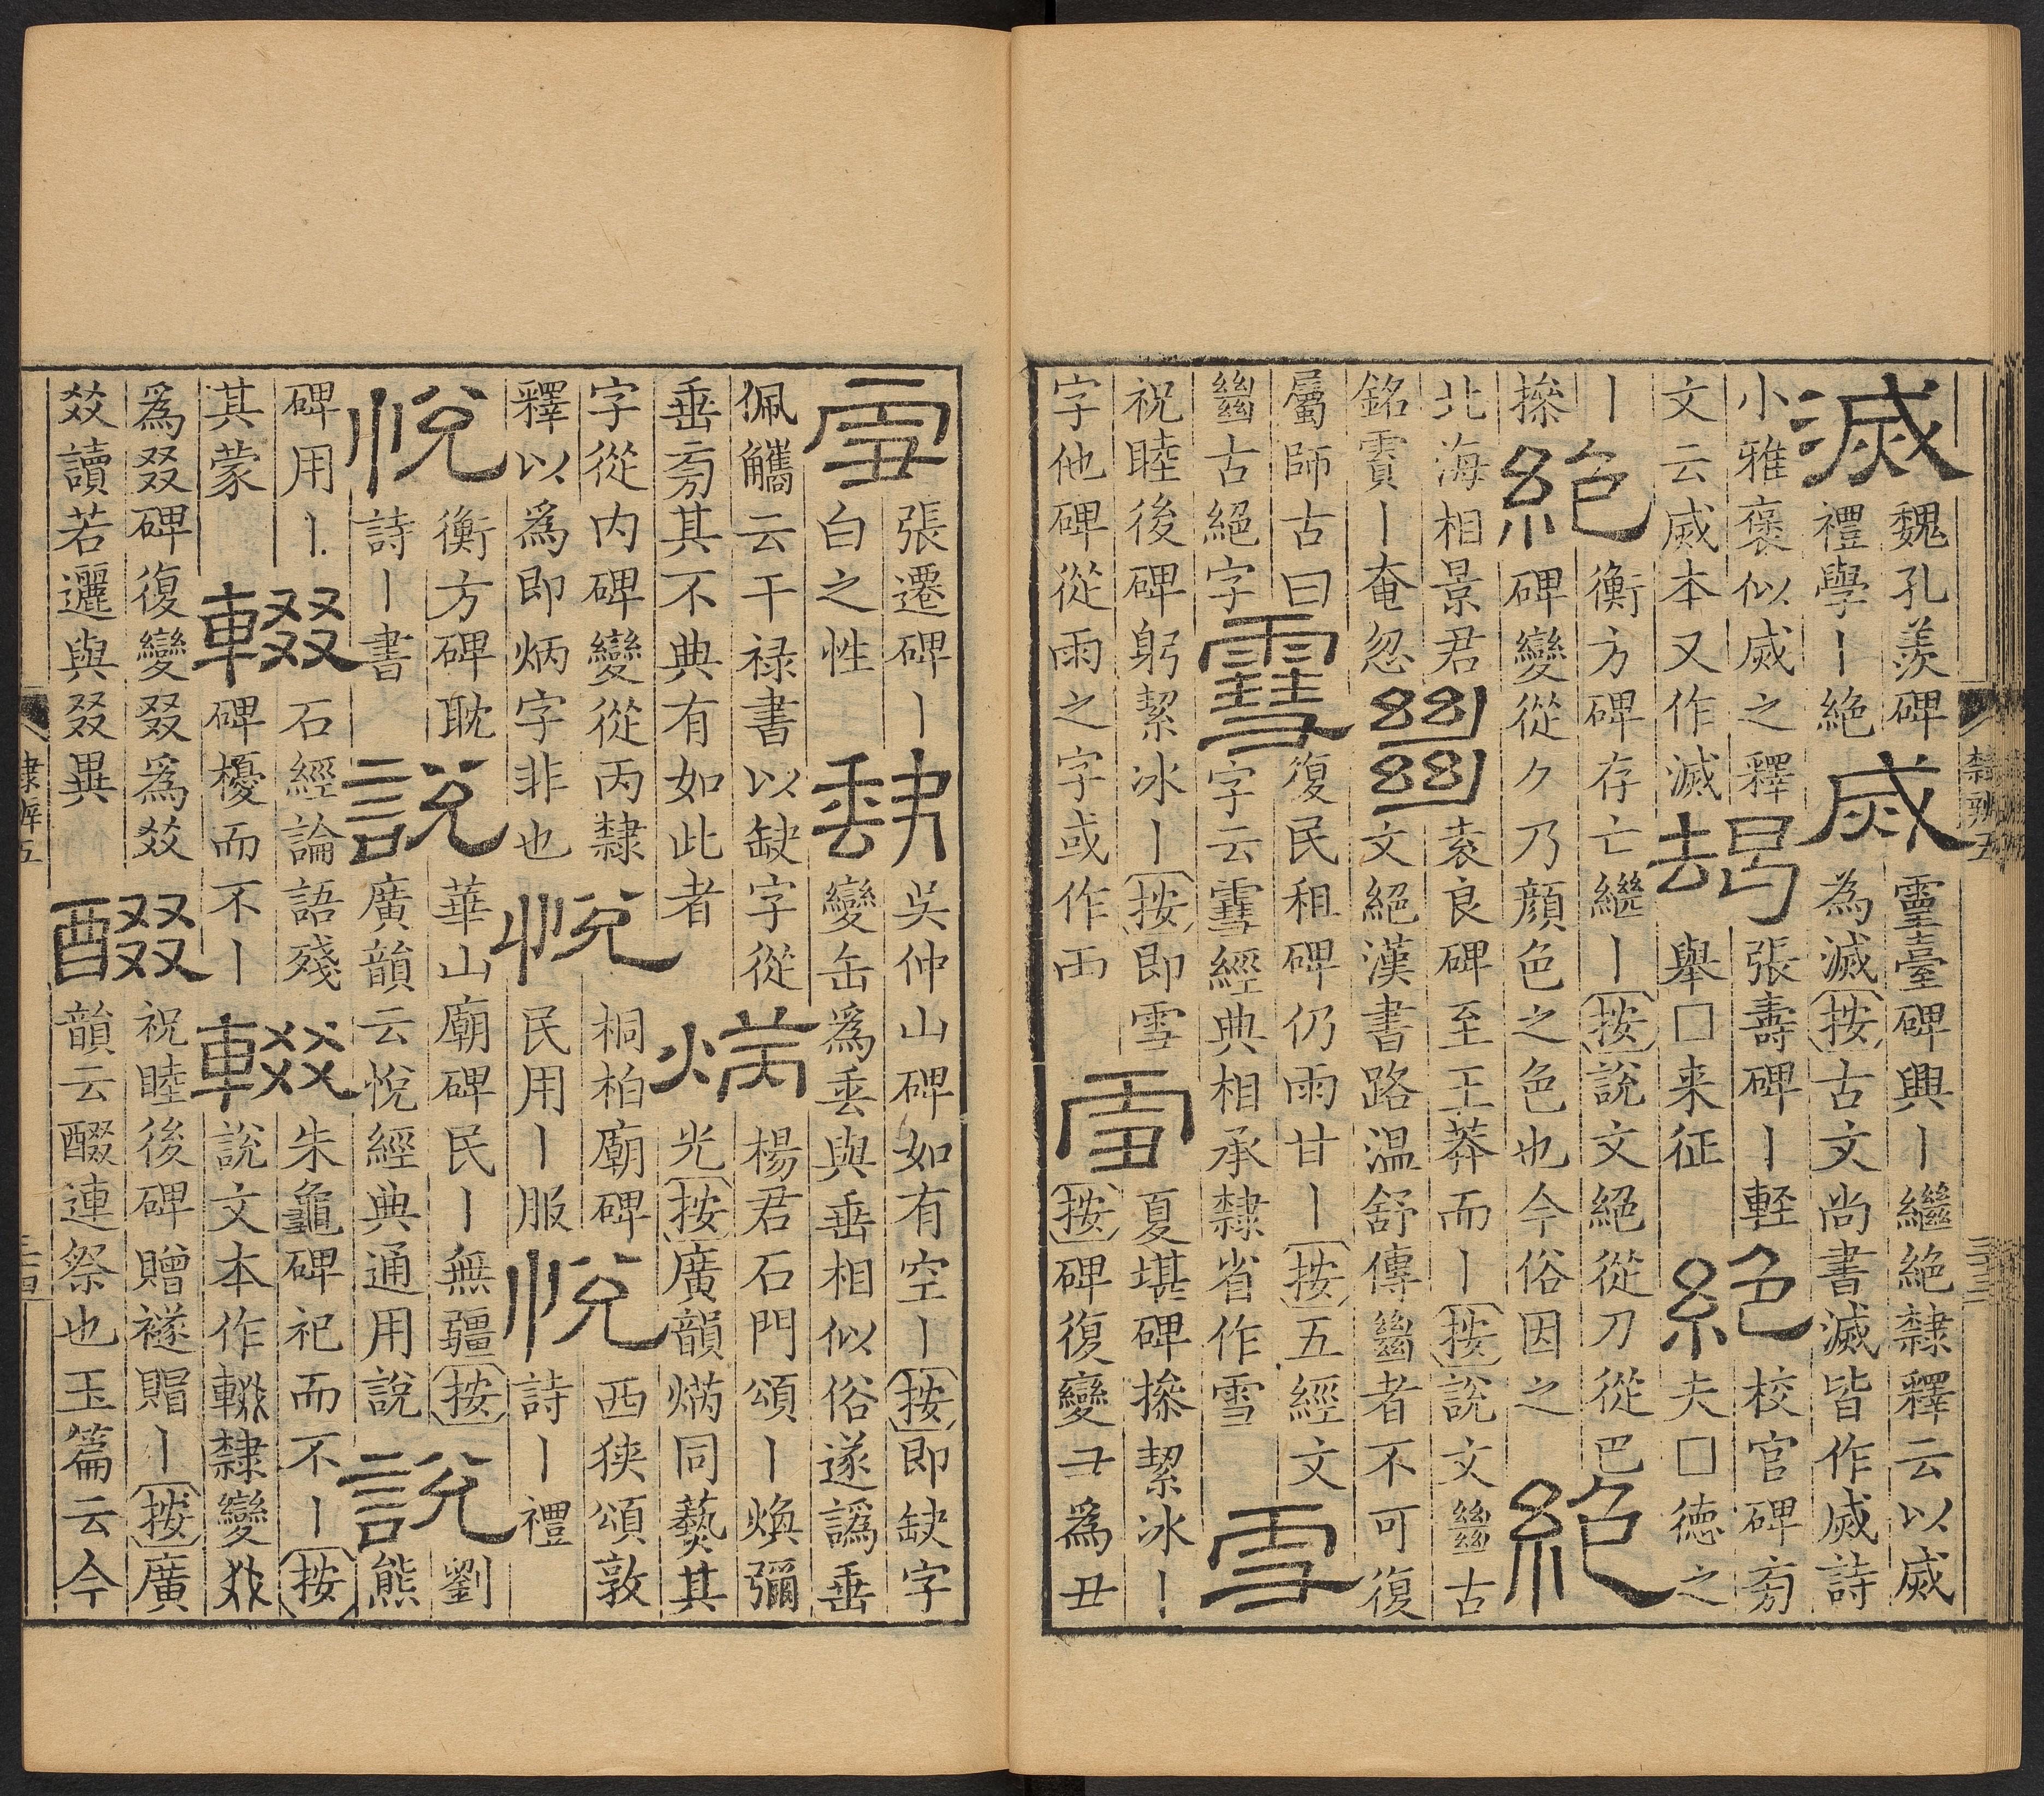 滅
魏孔羨碑
禮學丨絶
烕
靈臺碑興丨繼絶隸釋云以烕
為滅按古文尚書滅皆作烕詩
小雅褒似烕之釋
文云烕本又作滅
朅
張壽碑丨輊
舉□来征
絶
校官碑㫄
夫□徳之
丨
搽
絶
衡方碑存亡繼丨按說文絶從刀從巴
碑變從ク乃顔色之色也今俗因之
絶
北海相景君
銘霣丨奄忽
𢇍
袁良碑至王莽而丨按說文𢇍古
文絶漢書路温舒傳𢇍者不可復
屬師古曰
𢇍古絶字
䨮
復民租碑仍雨甘丨按五經文
字云䨮經典相承隸省作雪
雪
祝睦後碑躬絜冰丨按即雪
字他碑從雨之字或作雨
雪
夏堪碑搽絜冰丨
按碑復變彐為丑
隸辨五
三十三
雪
張遷碑丨
白之性
缺
吳仲山碑如有空丨按即缺字
變缶為垂與垂相似俗遂譌垂
佩觿云干禄書以缺字從
垂㫄其不典有如此者
焫
楊君石門頌丨煥彌
光按廣韻焫同爇其
字從内碑變從丙隸
釋以為即炳字非也
悅
桐柏廟碑
民用丨服
悅
西狹頌敦
詩丨禮
悅
衡方碑耽
詩丨書
說
華山廟碑民丨無疆按
廣韻云悅經典通用說
說
劉
熊
碑用丨
其蒙
輟
石經論語殘
碑櫌而不丨
輟
朱龜碑祀而不丨按
說文本作輟隸變叕
為叕碑復變叕為㸚
㸚讀若邐與叕異
醊
祝睦後碑贈襚賵丨按廣
韻云醊連祭也玉篇云今
隸辨五
三十四